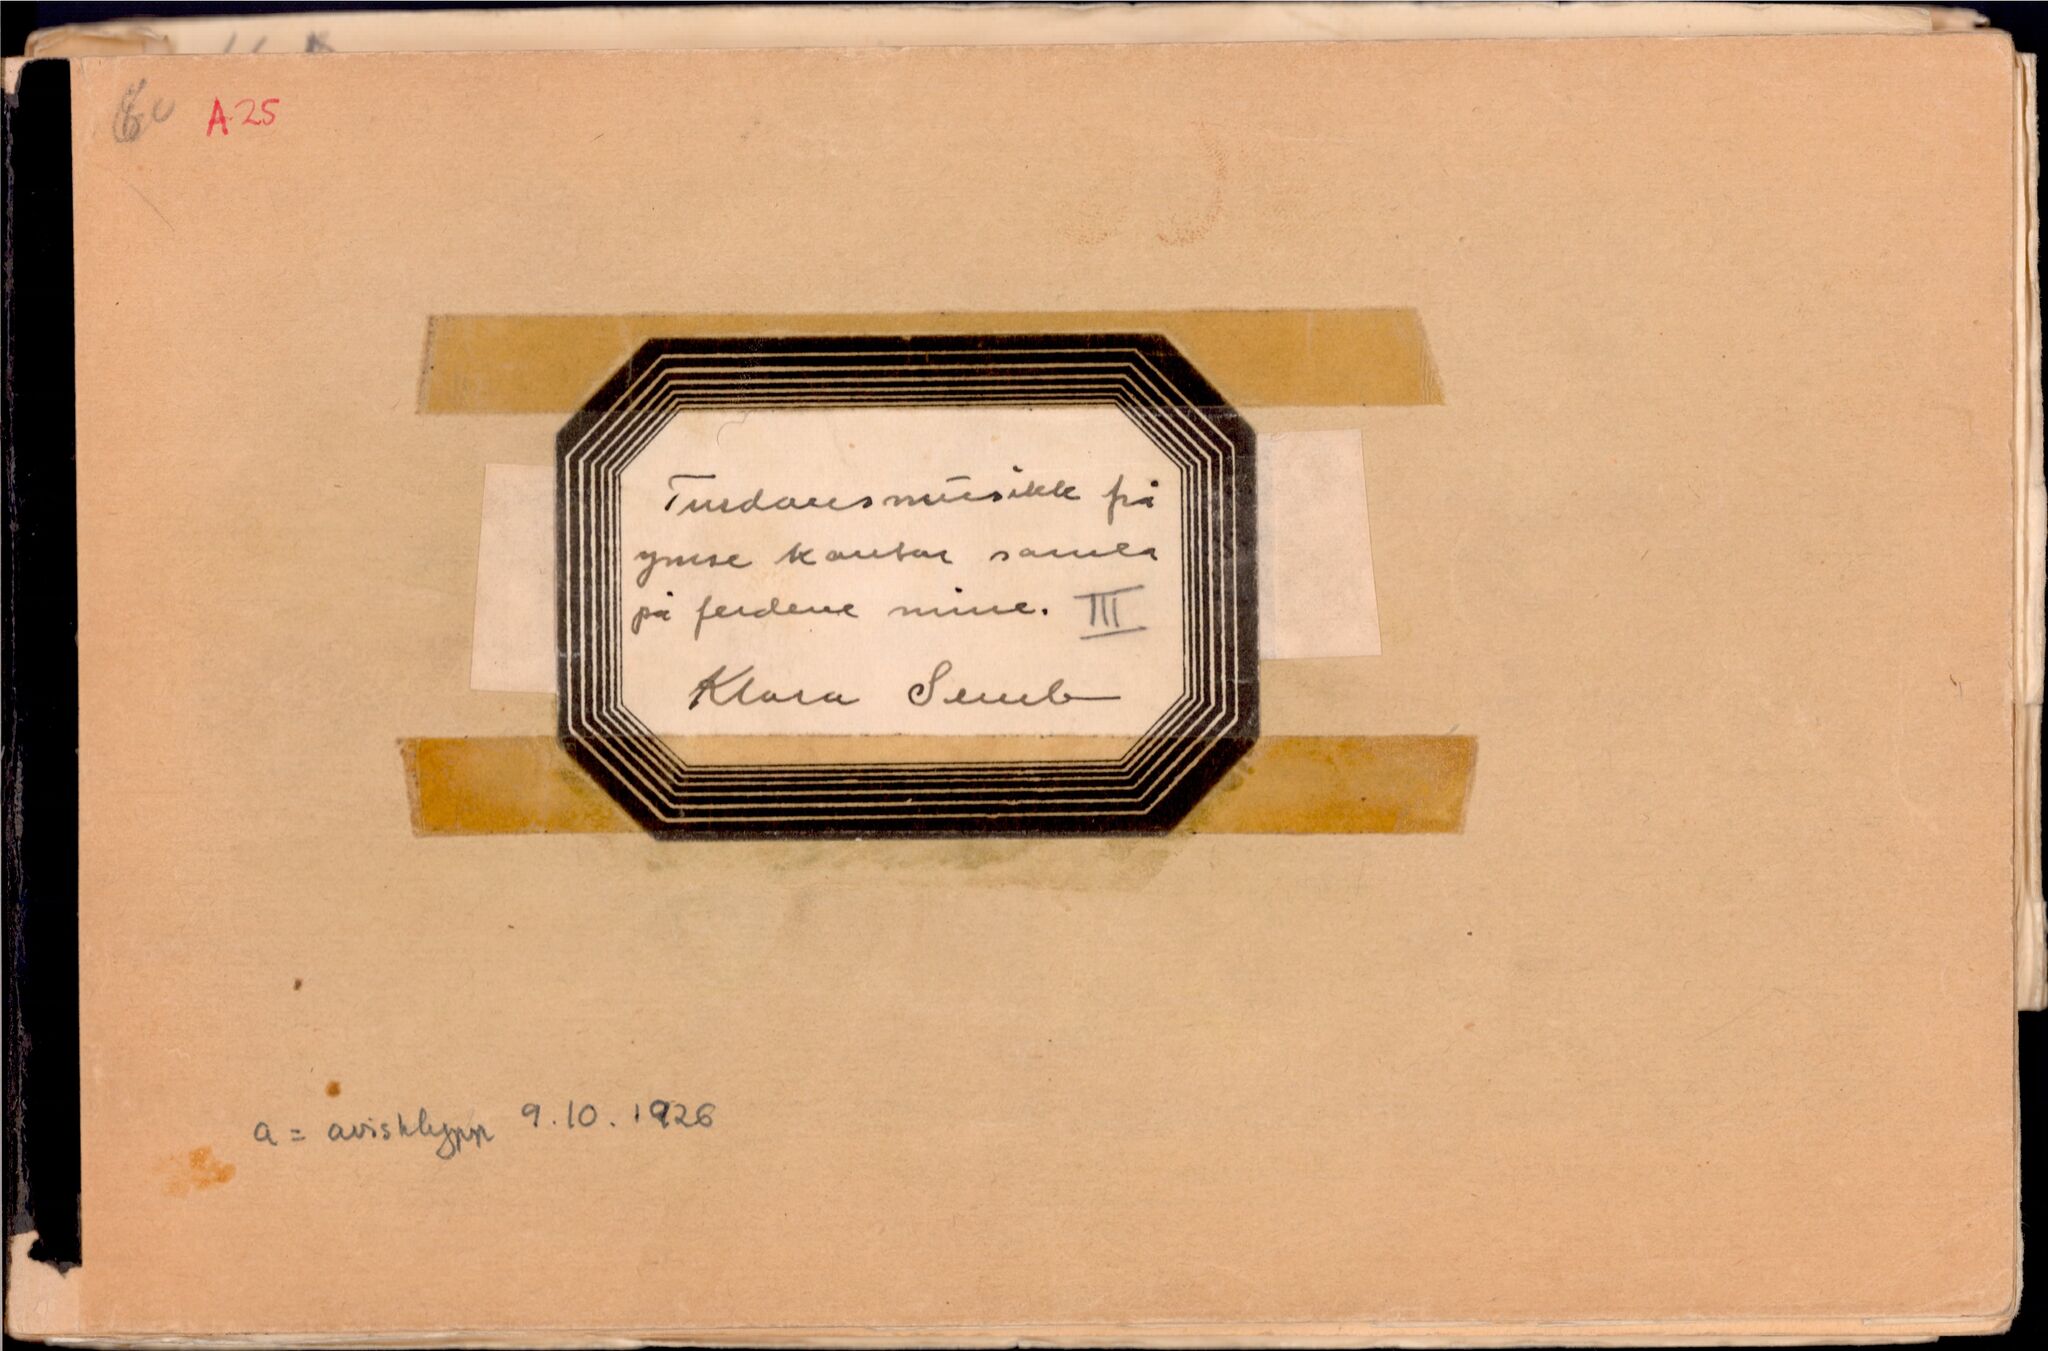 A 25
Turdansmusikk frå
ymse kantar samla
på ferdene mine. III
Klara Semb
a = avisklypp 9.10.1926